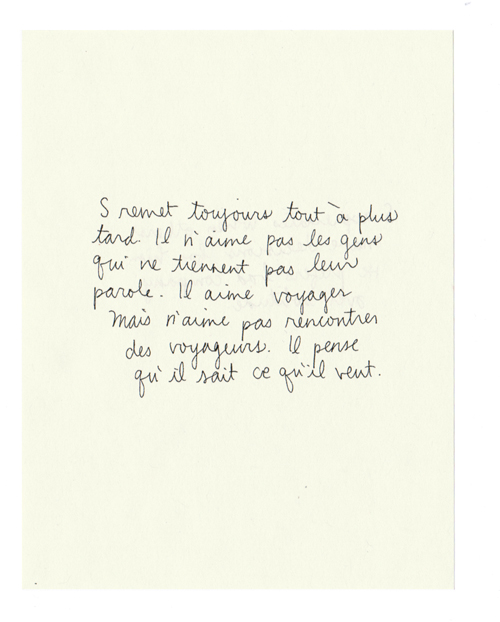 S remet toujours tout à plus
tard. Il n'aime pas les gens
qui ne tiennent pas leur
parole. Il aime voyager
mais n'aime pas rencontrer
des voyageurs. Il pense
qu'il sait ce qu'il veut.